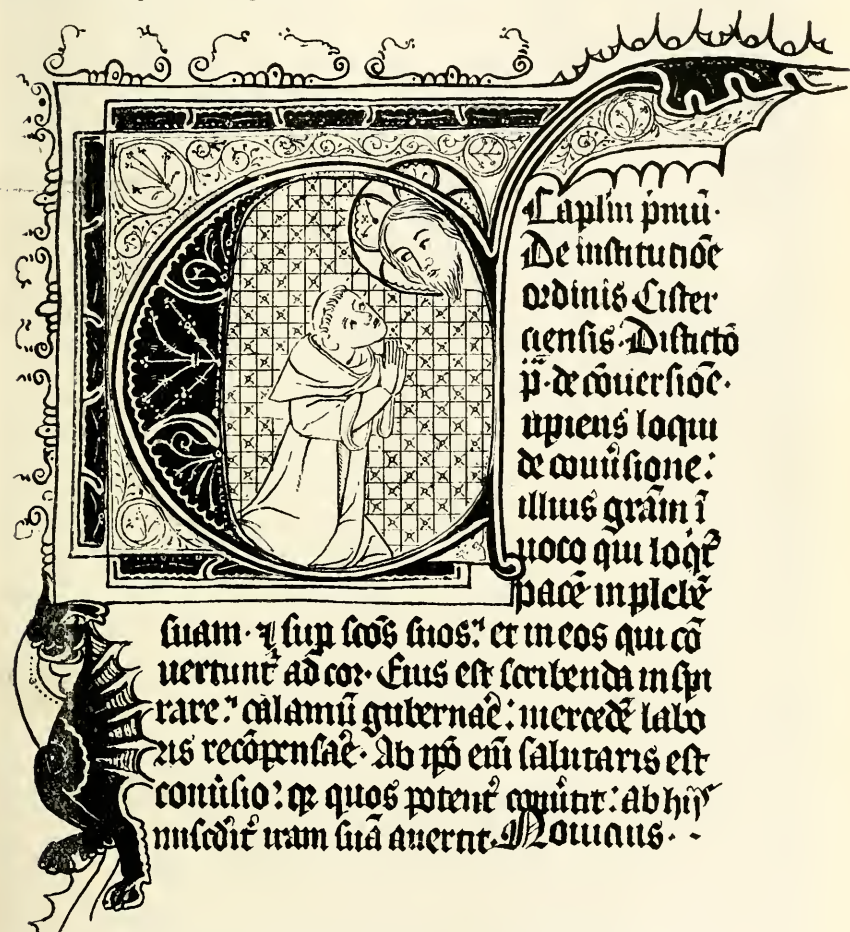 Caplm pmū·
De institutiōe
ordinis Cister
ciensis· Distictō
p̄· de cōuersiōe·
Cupiens loqui
de conu̓sione:
illius grām ī
uoco qui loqt̓
pacē in plebē
suam· ⁊ sup sc̄os suos: et in eos qui cō
uertunt̓ ad cor· Eius est scribenda inspi
rare: calamū gubernar̄e: mercedē labo
ris recōpensar̄e· Ab ip̄o eīm salutaris est
conu̓sio: qꝛ quos potent̓ conu̓tit: ab hijs
miscdit̓ iram suā auertit· Nouicius· -